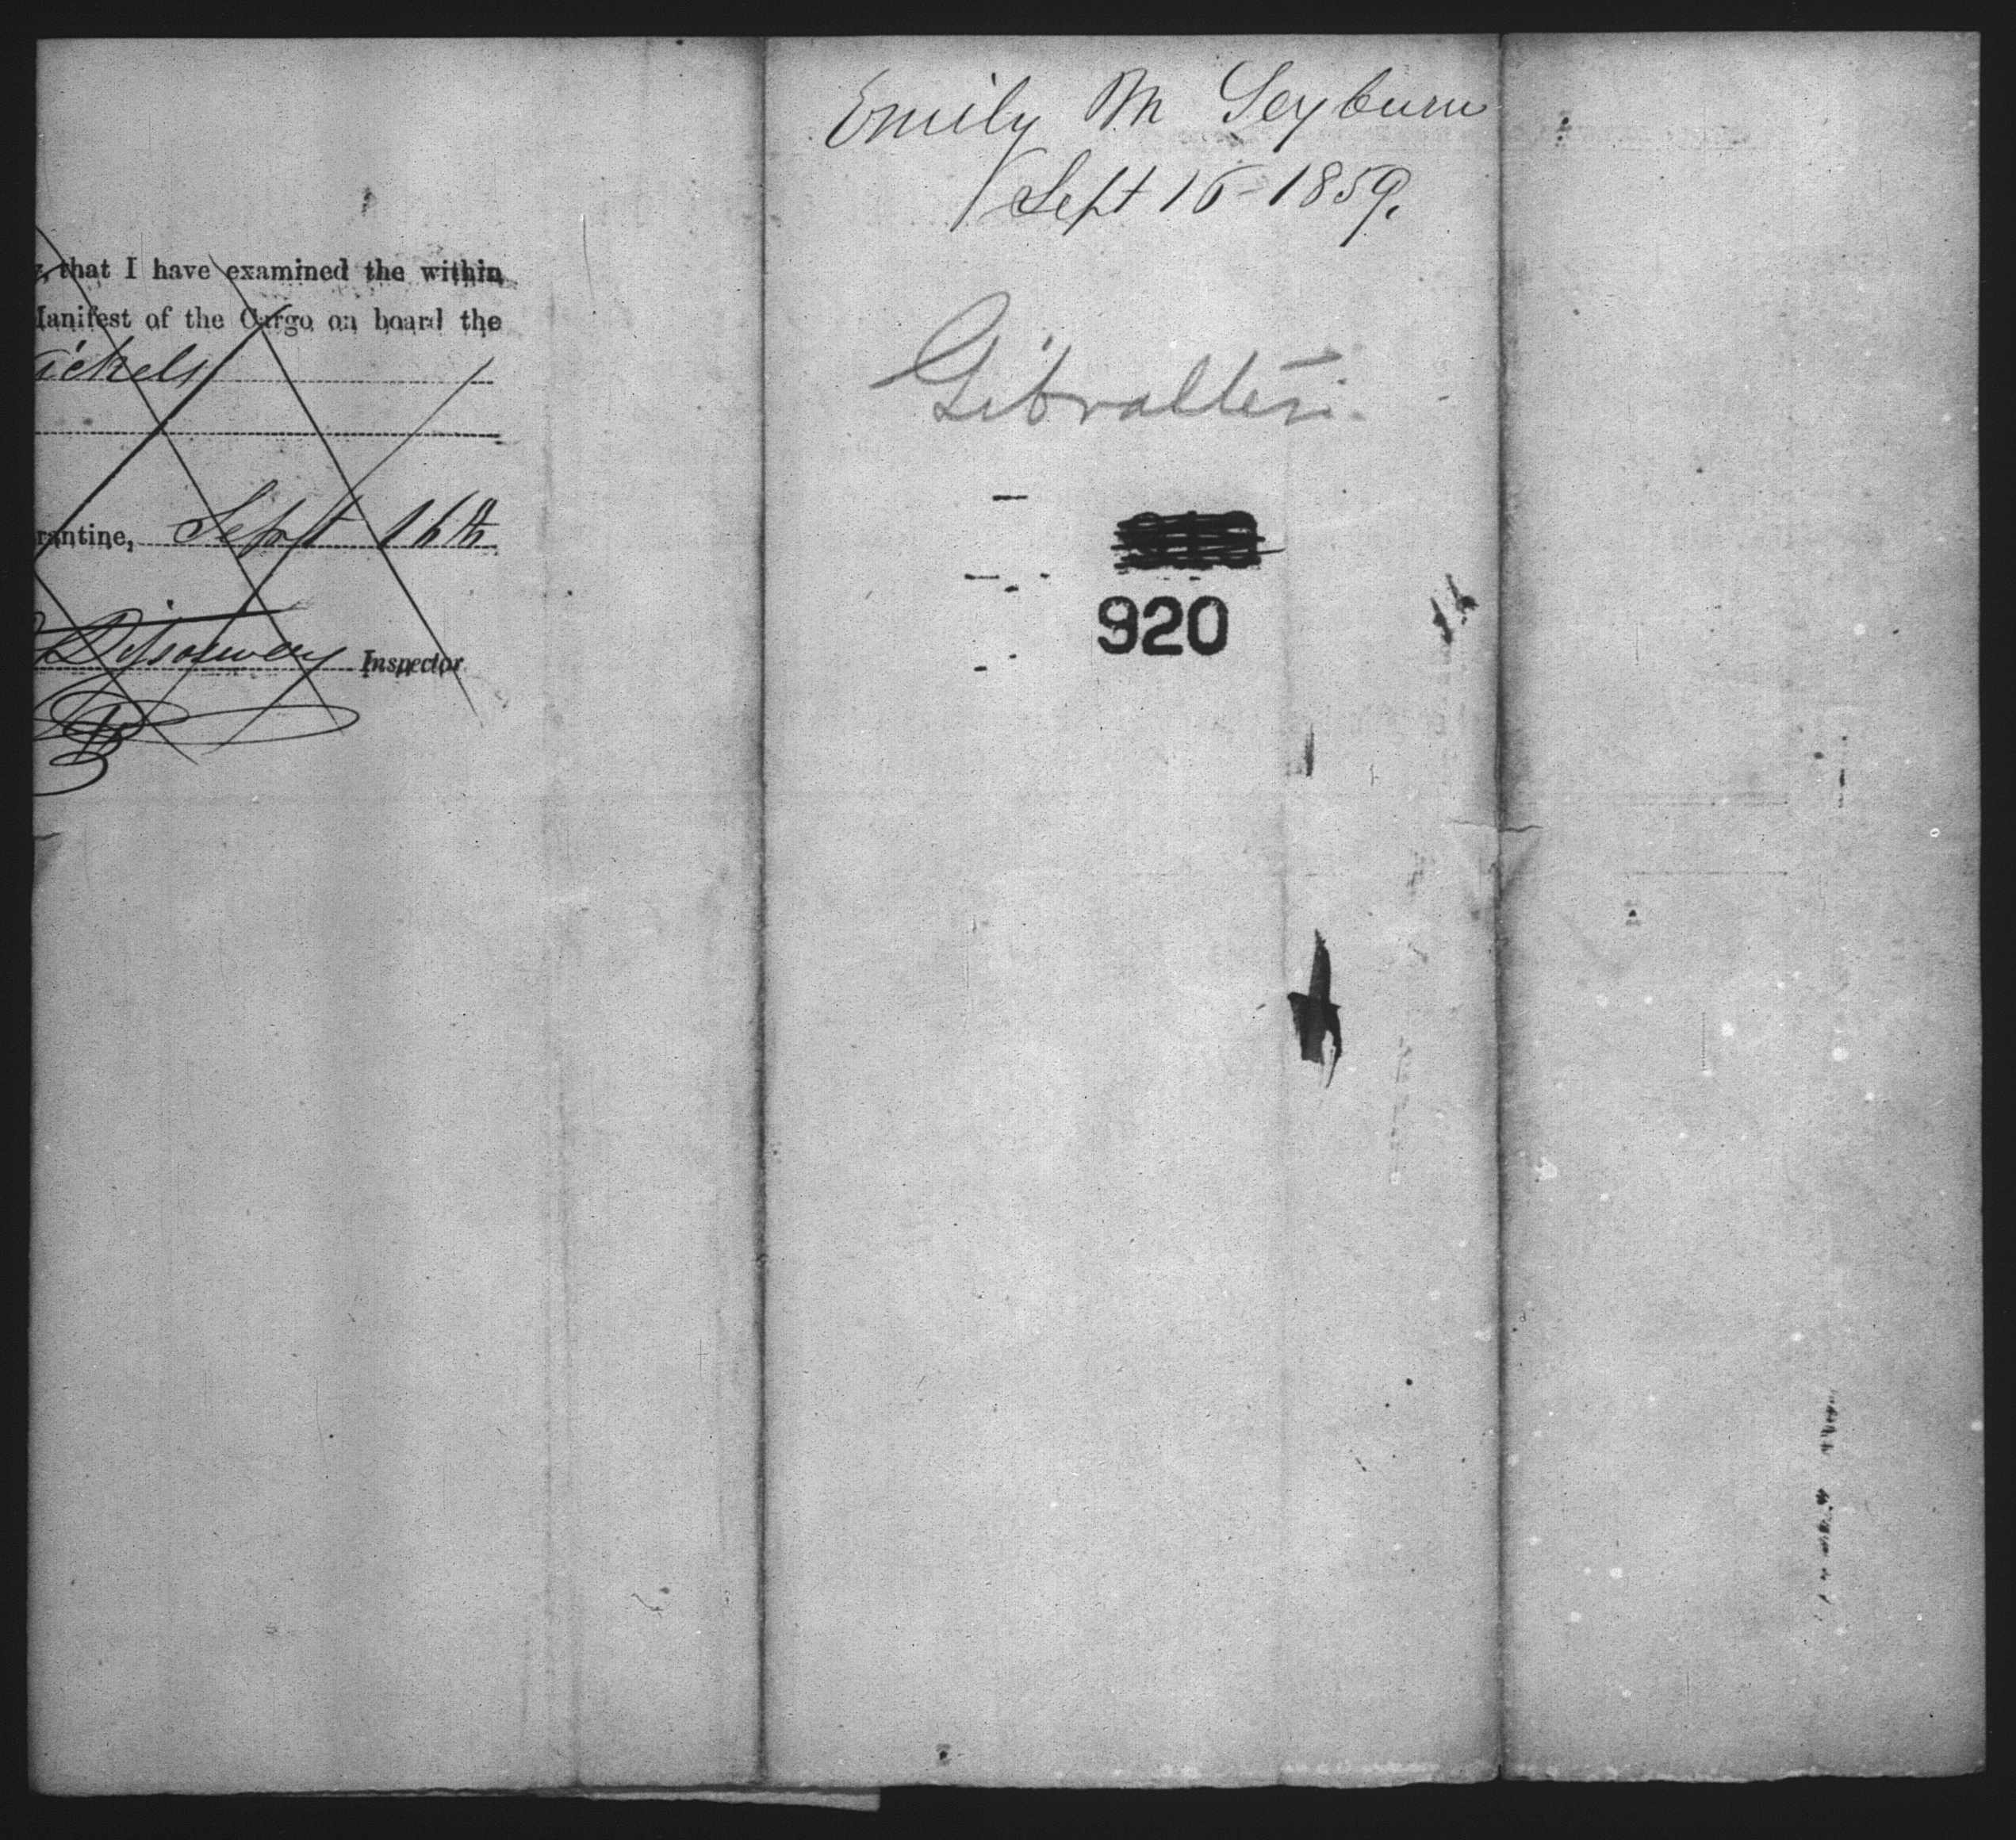 , that I have examined the within
Manifest of the Cargo on board the
ickels
rantine, Sept 16th
Inspector
Emily M Seyburn
Sept 16 - 1859.
Gibralter.
920